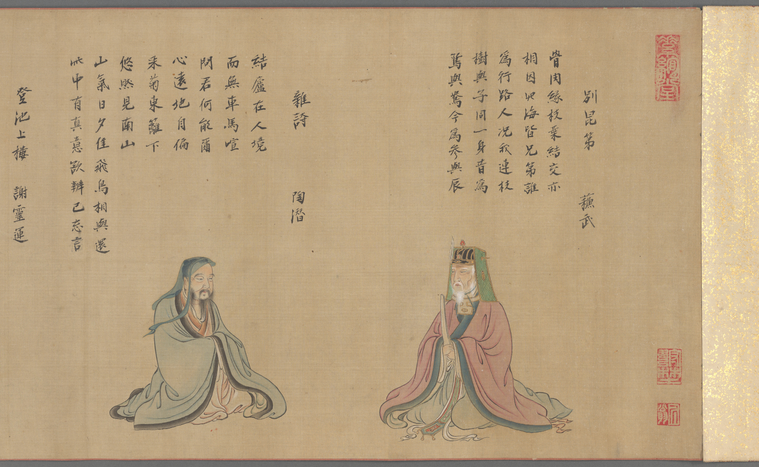 別昆弟 蘇武
骨肉緣枝葉結交亦
相因四海皆兄弟誰
為行路人況我連枝
樹與子同一身昔為
鴛與鴦今為參與辰
雜詩 陶潛
結廬在人境
而無車馬喧
問君何能爾
心遠地自偏
采菊東籬下
悠然見南山
山氣日夕佳飛鳥相與還
此中有真意欲辨已忘言
登池上樓 謝靈運